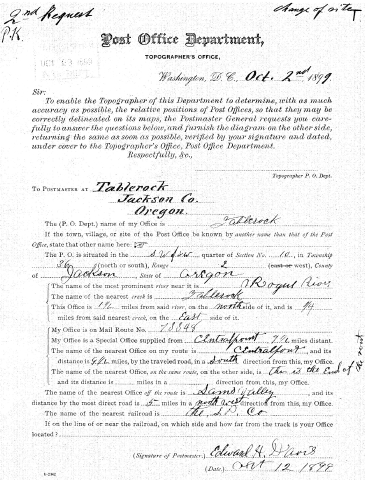 2nd Request
change of site
P.K.
Post Office Department,
TOPOGRAPHER'S OFFICE,
Washington, D. C. Oct. 2nd 1899.
Sir:
To enable the Topographer of this Department to determine, with as much
accuracy as possible, the relative positions of Post Offices, so that they may be
correctly delineated on its maps, the Postmaster General requests you care-
fully to answer the questions below, and furnish the diagram on the other side,
returning the same as soon as possible, verified by your signature and dated,
under cover to the Topographer's Office, Post Office Department.
Respectfully, &c.,
Topographer P. O. Dept.
TO POSTMASTER AT Tablerock
Jackson Co.
Oregon.
The (P. O. Dept.) name of my Office is Tablerock
If the town, village, or site of the Post Office be known by another name than that of the Post
Office, state that other name here:
The P. O. is situated in the S.W. of S.W. quarter of Section No. 10, in Township
36 (north or south), Range 2 (east or west), County
of Jackson, State of Oregon
The name of the most prominent river near it is Rogue River
The name of the nearest creek is Tablerock
This Office is miles from said river, on the north side of it, and is
miles from said nearest creek, on East side of it.
My Office is on Mail Route No.
My Office is a Special Office supplied from Centralpoint miles distant.
The name of the nearest Office on my route is Centralpoint, and its
distance is miles, by the traveled road, in a South direction from this, my Office.
The name of the nearest Office, on the same route, on the other side, is this is the End of the route
and its distance is miles in a direction from this, my Office.
The name of the nearest Office off the route is Sams Valley, and its
distance by the most direct road is 5 miles in a north west direction from this, my Office.
The name of the nearest railroad is the S.P. Co
If on the line of or near the railroad, on which side and how far from the track is your Office
located?
(Signature of Postmaster.) Edward H. Davis
(Date.) Oct 12 1899